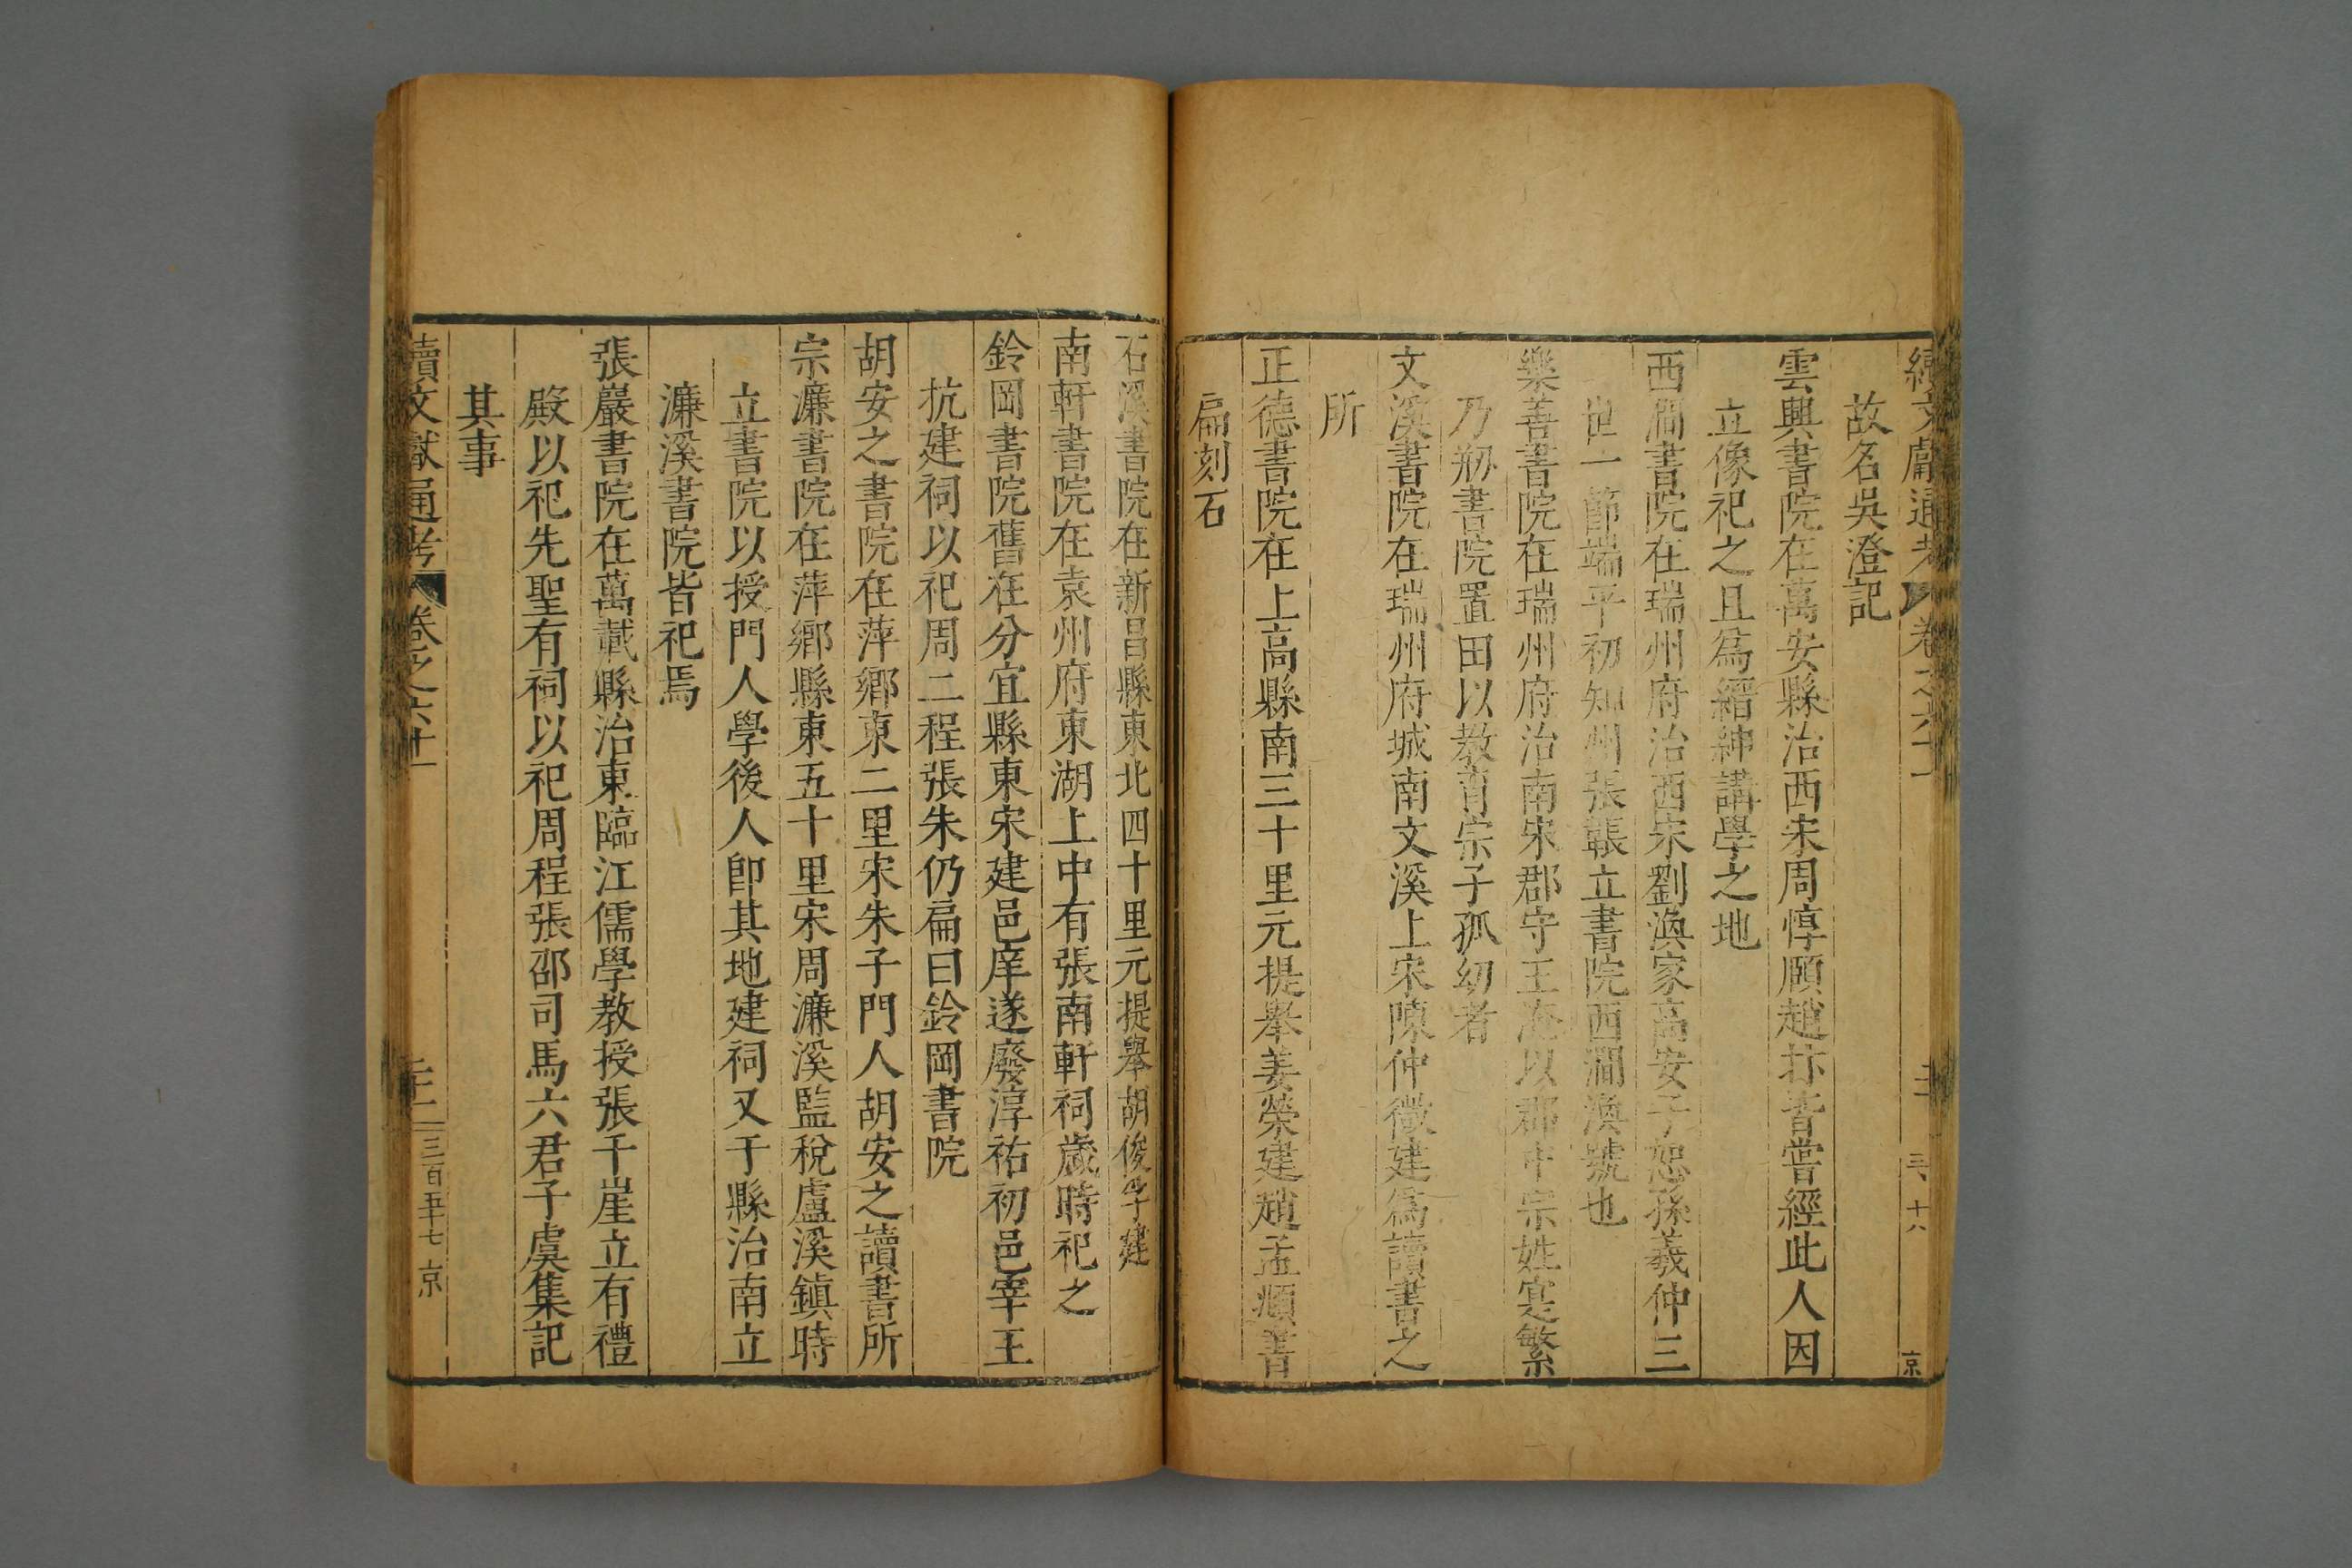 續文獻通考 卷之六十一
故名吳澄記
雲興書院在萬安縣治西宋周惇頤趙抃皆嘗經此人因
立像祀之且為縉紳講學之地
西澗書院在瑞州府治西宋劉渙家高安子恕孫羲仲三
世一節端平初知州張 立書院西澗渙號也
樂善書院在瑞州府治南宋郡守王淹以郡中宗姓寔繁
乃剏書院置田以教育宗子孤幼者
文溪書院在瑞州府城南文溪上宋陳仲微建為讀書之
所
正德書院在上高縣南三十里元提舉姜榮建趙孟頫書
扁刻石
石溪書院在新昌縣東北四十里元提舉胡俊孚建
南軒書院在袁州府東湖上中有張南軒祠歲時祀之
鈐岡書院舊在分宜縣東宋建邑庠遂廢淳祐初邑宰王
抗建祠以祀周二程張朱仍扁曰鈐岡書院
胡安之書院在萍鄉東二里宋朱子門人胡安之讀書所
宗濂書院在萍鄉縣東五十里宋周濂溪監稅盧溪鎮時
立書院以授門人學後人即其地建祠又于縣治南立
濂溪書院皆祀焉
張巖書院在萬載縣治東臨江儒學教授張千崖立有禮
殿以祀先聖有祠以祀周程張邵司馬六君子虞集記
其事
續文獻通考 卷之六十一
三百五十七 京